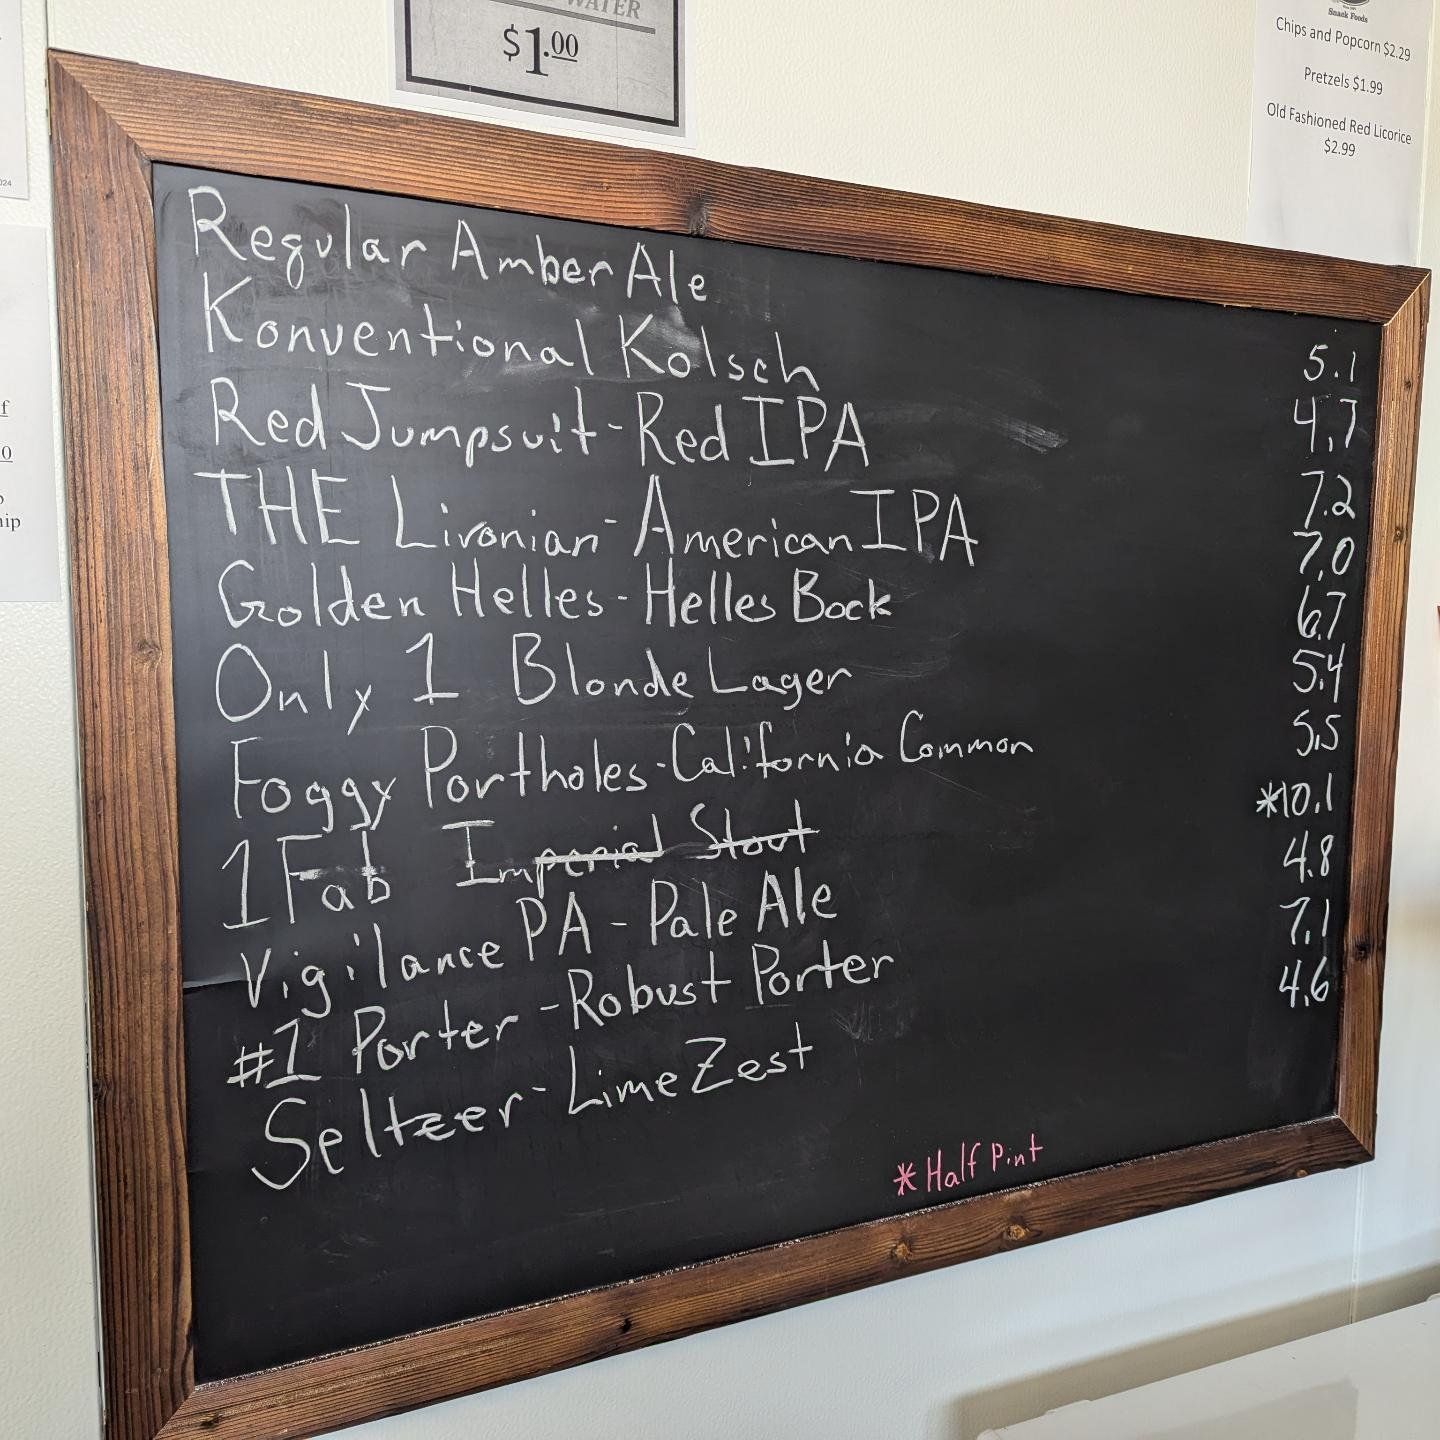 WATER
$1.00
Snack Foods
Chips and Popcorn $2.29
Pretzels $1.99
Old Fashioned Red Licorice
$2.99
Regular Amber Ale 5.1
Konventional Kolsch 4.7
Red Jumpsuit - Red IPA 7.2
THE Livonian - American IPA 7.0
Golden Helles - Helles Bock 6.7
Only 1 Blonde Lager 5.4
Foggy Portholes - California Common 5.5
1 Fab Imperial Stout *10.1
Vigilance PA - Pale Ale 4.8
#1 Porter - Robust Porter 7.1
Seltzer - Lime Zest 4.6
*Half Pint